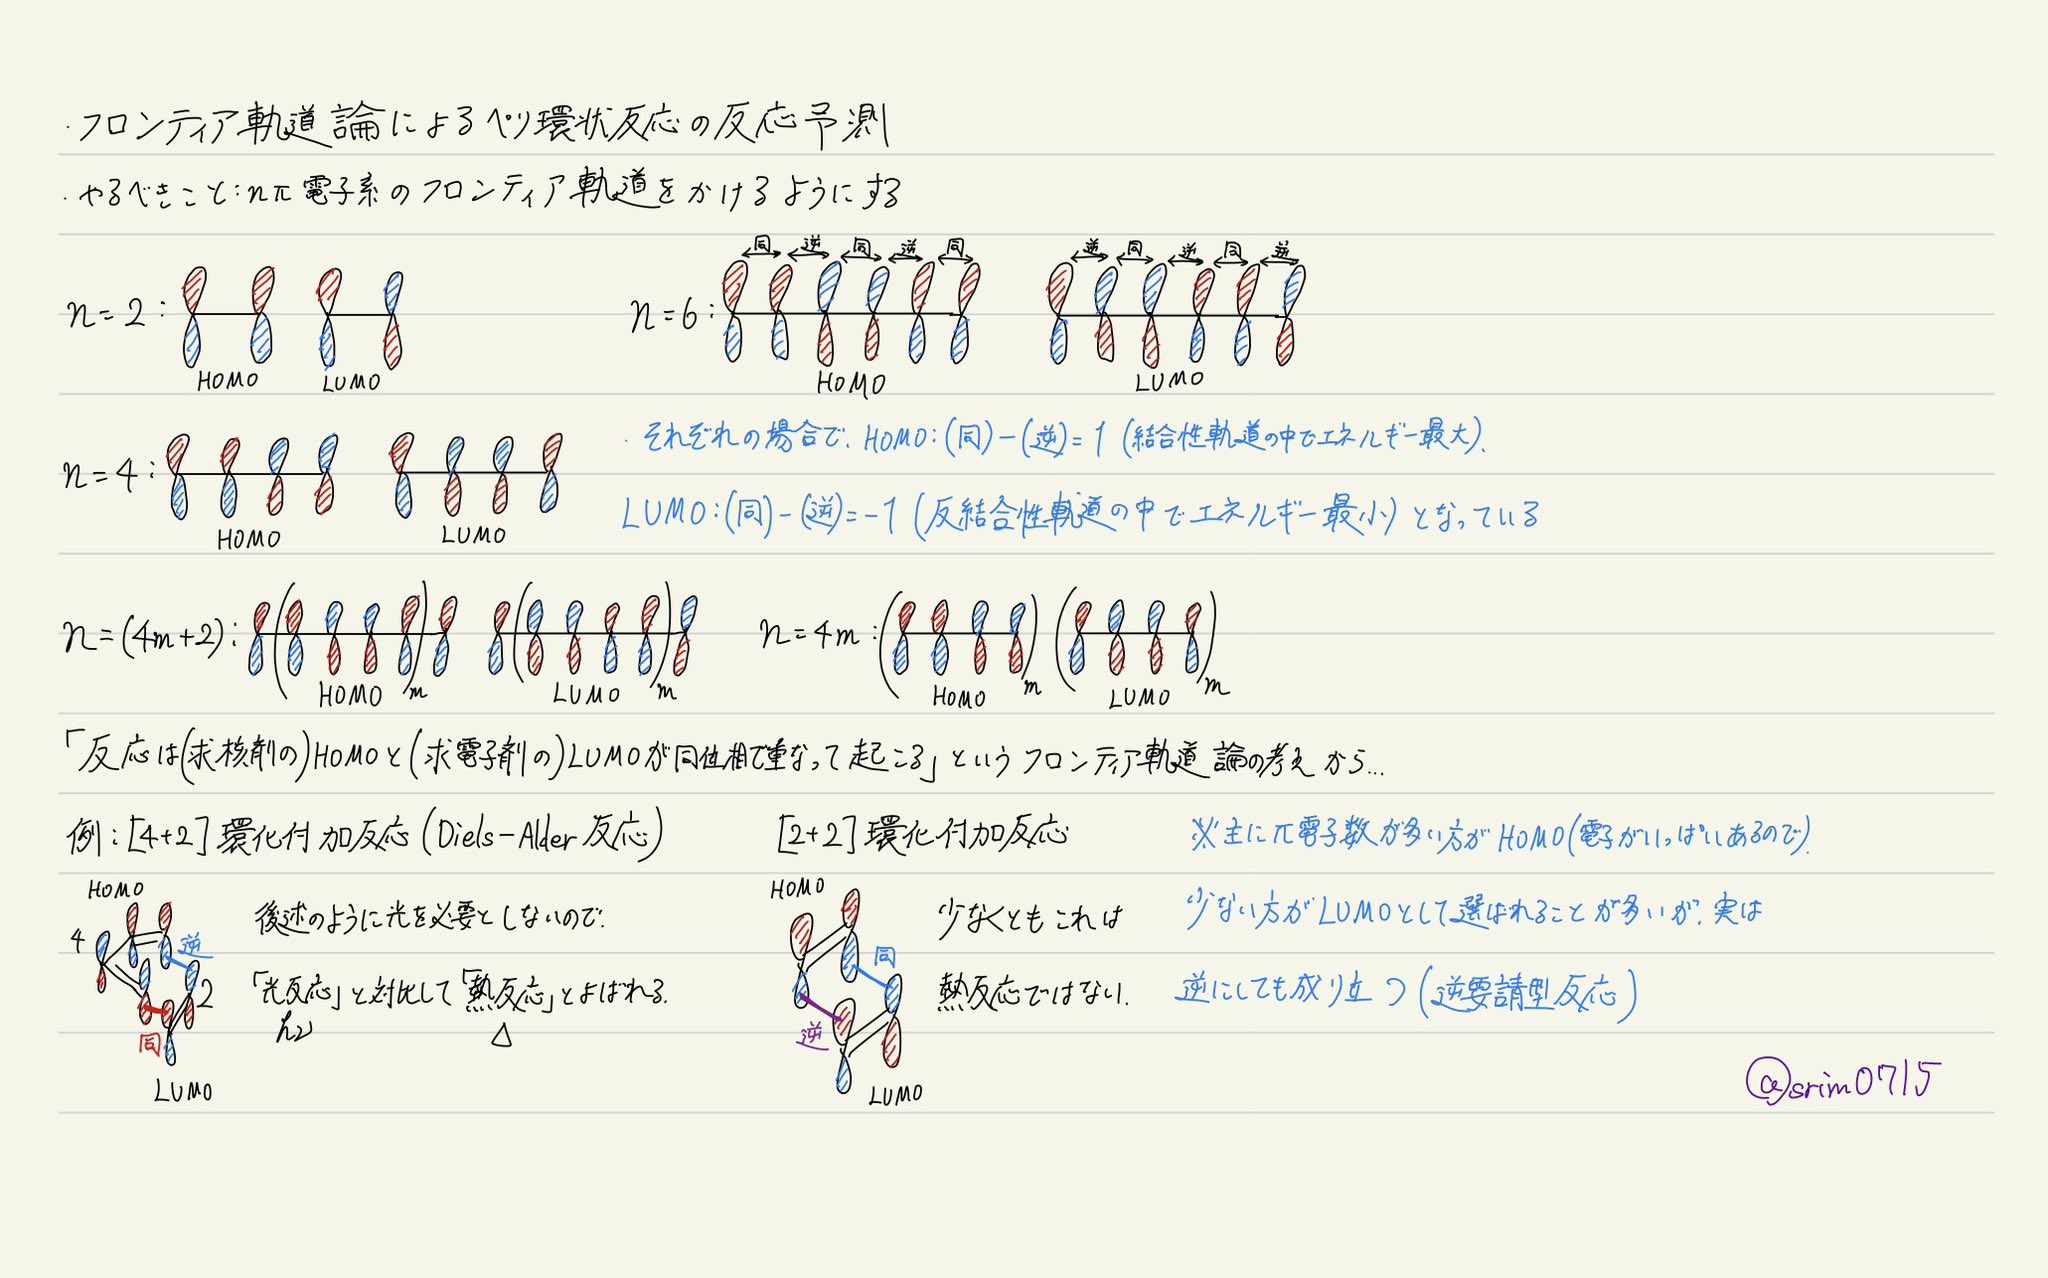 ・フロンティア軌道論によるペリ環状反応の反応予測
・やるべきこと:nπ電子系のフロンティア軌道をかけるようにする
同 逆 同 逆 同
逆 同 逆 同 逆
n=2:
HOMO LUMO
n=6:
HOMO LUMO
n=4:
HOMO LUMO
・それぞれの場合で、HOMO:(同)-(逆)=1(結合性軌道の中でエネルギー最大)、
LUMO:(同)-(逆)=-1(反結合性軌道の中でエネルギー最小)となっている
n=(4m+2):
HOMO m LUMO m
n=4m:
HOMO m LUMO m
「反応は(求核剤の)HOMOと(求電子剤の)LUMOが同位相で重なって起こる」というフロンティア軌道論の考えから…
例:[4+2]環化付加反応(Diels-Alder反応)
HOMO
4
逆
2
同
LUMO
後述のように光を必要としないので、
「光反応」と対比して「熱反応」とよばれる.
hν △
[2+2]環化付加反応
HOMO
同
逆
LUMO
少なくともこれは
熱反応ではない.
※主にπ電子数が多い方がHOMO(電子がいっぱいあるので)、
少ない方がLUMOとして選ばれることが多いが、実は
逆にしても成り立つ(逆要請型反応)
@srim0715